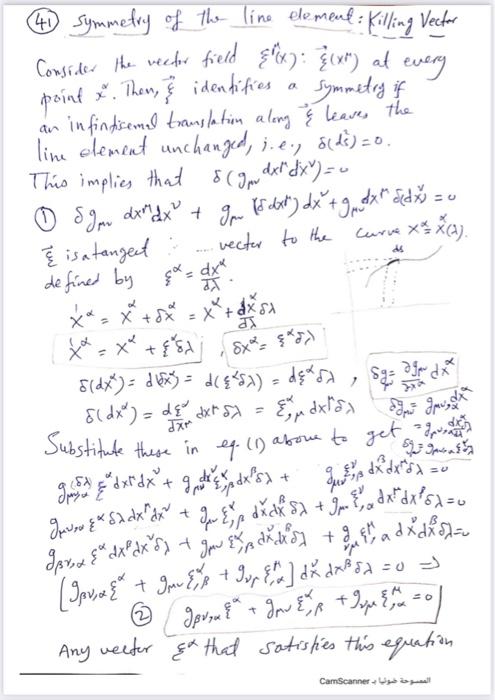 (41) symmetry of the line element: Killing Vector
Consider the vector field ξ^μ(x): ξ⃗(x^μ) at every
point x^α. Then, ξ⃗ identifies a symmetry if
an infinitisemal translation along ξ⃗ leaves the
line element unchanged, i.e., δ(ds²)=0.
This implies that δ(g_μν dx^μ dx^ν)=0
① δg_μν dx^μ dx^ν + g_μν (δdx^μ) dx^ν + g_μν dx^μ δ(dx^ν) = 0
ξ⃗ is a tangent vector to the curve x^α = x^α(λ).
defined by ξ^α = dx^α/dλ
ds
x'^α = x^α + δx^α = x^α + dx^α/dλ δλ
x'^α = x^α + ξ^α δλ , δx^α = ξ^α δλ
δ(dx^α) = d(δx^α) = d(ξ^α δλ) = dξ^α δλ , δg_μν = ∂g_μν/∂x^α dx^α
δ(dx^α) = dξ^α/dx^μ dx^μ δλ = ξ^α_,μ dx^μ δλ δg_μν = g_μν,α dx^α
Substitute these in eq. (1) above to get = g_μν,α dx^α/dλ δλ
δg = g_μν,α ξ^α δλ
g_μν,α (δλ) ξ^α dx^μ dx^ν + g_μν dx^ν ξ^μ_,β dx^β δλ + g_μν ξ^ν_,β dx^β dx^μ δλ = 0
g_μν,α ξ^α δλ dx^μ dx^ν + g_μν ξ^μ_,β dx^ν dx^β δλ + g_μν ξ^ν_,α dx^μ dx^β δλ = 0
g_βν,α ξ^α dx^β dx^ν δλ + g_μν ξ^μ_,β dx^ν dx^β δλ + g_νμ ξ^μ_,α dx^ν dx^β δλ = 0
[g_βν,α ξ^α + g_μν ξ^μ_,β + g_νμ ξ^μ_,α] dx^ν dx^β δλ = 0 ⇒
② g_βν,α ξ^α + g_μν ξ^μ_,β + g_νμ ξ^μ_,α = 0
Any vector ξ^α that satisfies this equation
الممسوحة ضوئيا بـ CamScanner